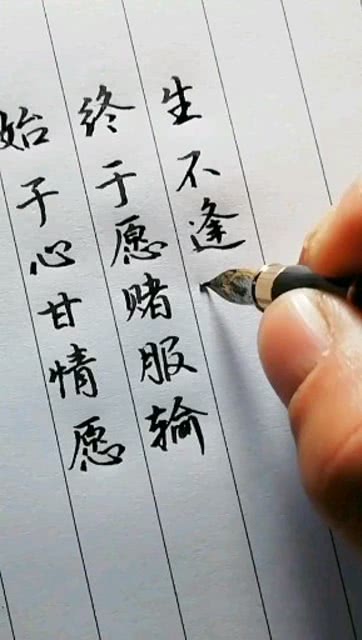 始于心甘情愿
终于愿赌服输
生不逢